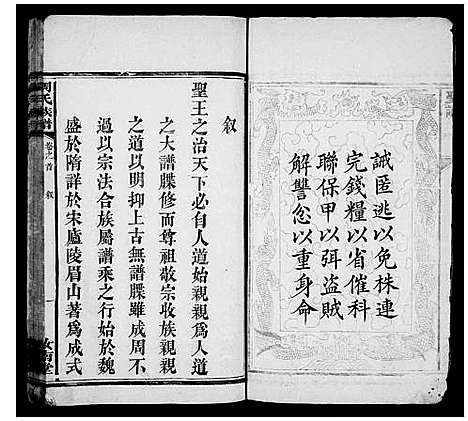 誡匿逃以免株連
完錢糧以省催科
聯保甲以弭盜賊
解讐忿以重身命
叙
聖王之治天下必自人道始親親為人道
之大譜牒修而尊祖敬宗收族親親
之道以明抑上古無譜牒雖成周不
過以宗法合族屬譜乘之行始於魏
盛於隋詳於宋廬陵眉山著為成式
周氏族譜
卷之首
叙
一
汝南堂